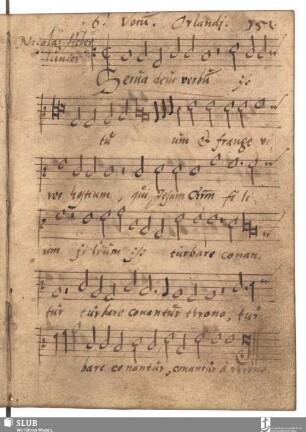 6. Vocū. Orlandi. 152
Nicolaꝰ Heber
Tenor
Serva deus verbū ijs
tū um & frange vi
ros hostium, qui Jesum Chrm fi li
um filium ijs turbare conan,
tūr turbare conantūr throno, tūr
bare conantūr, conantūr à throno
SLUB
Wir führen Wissen.